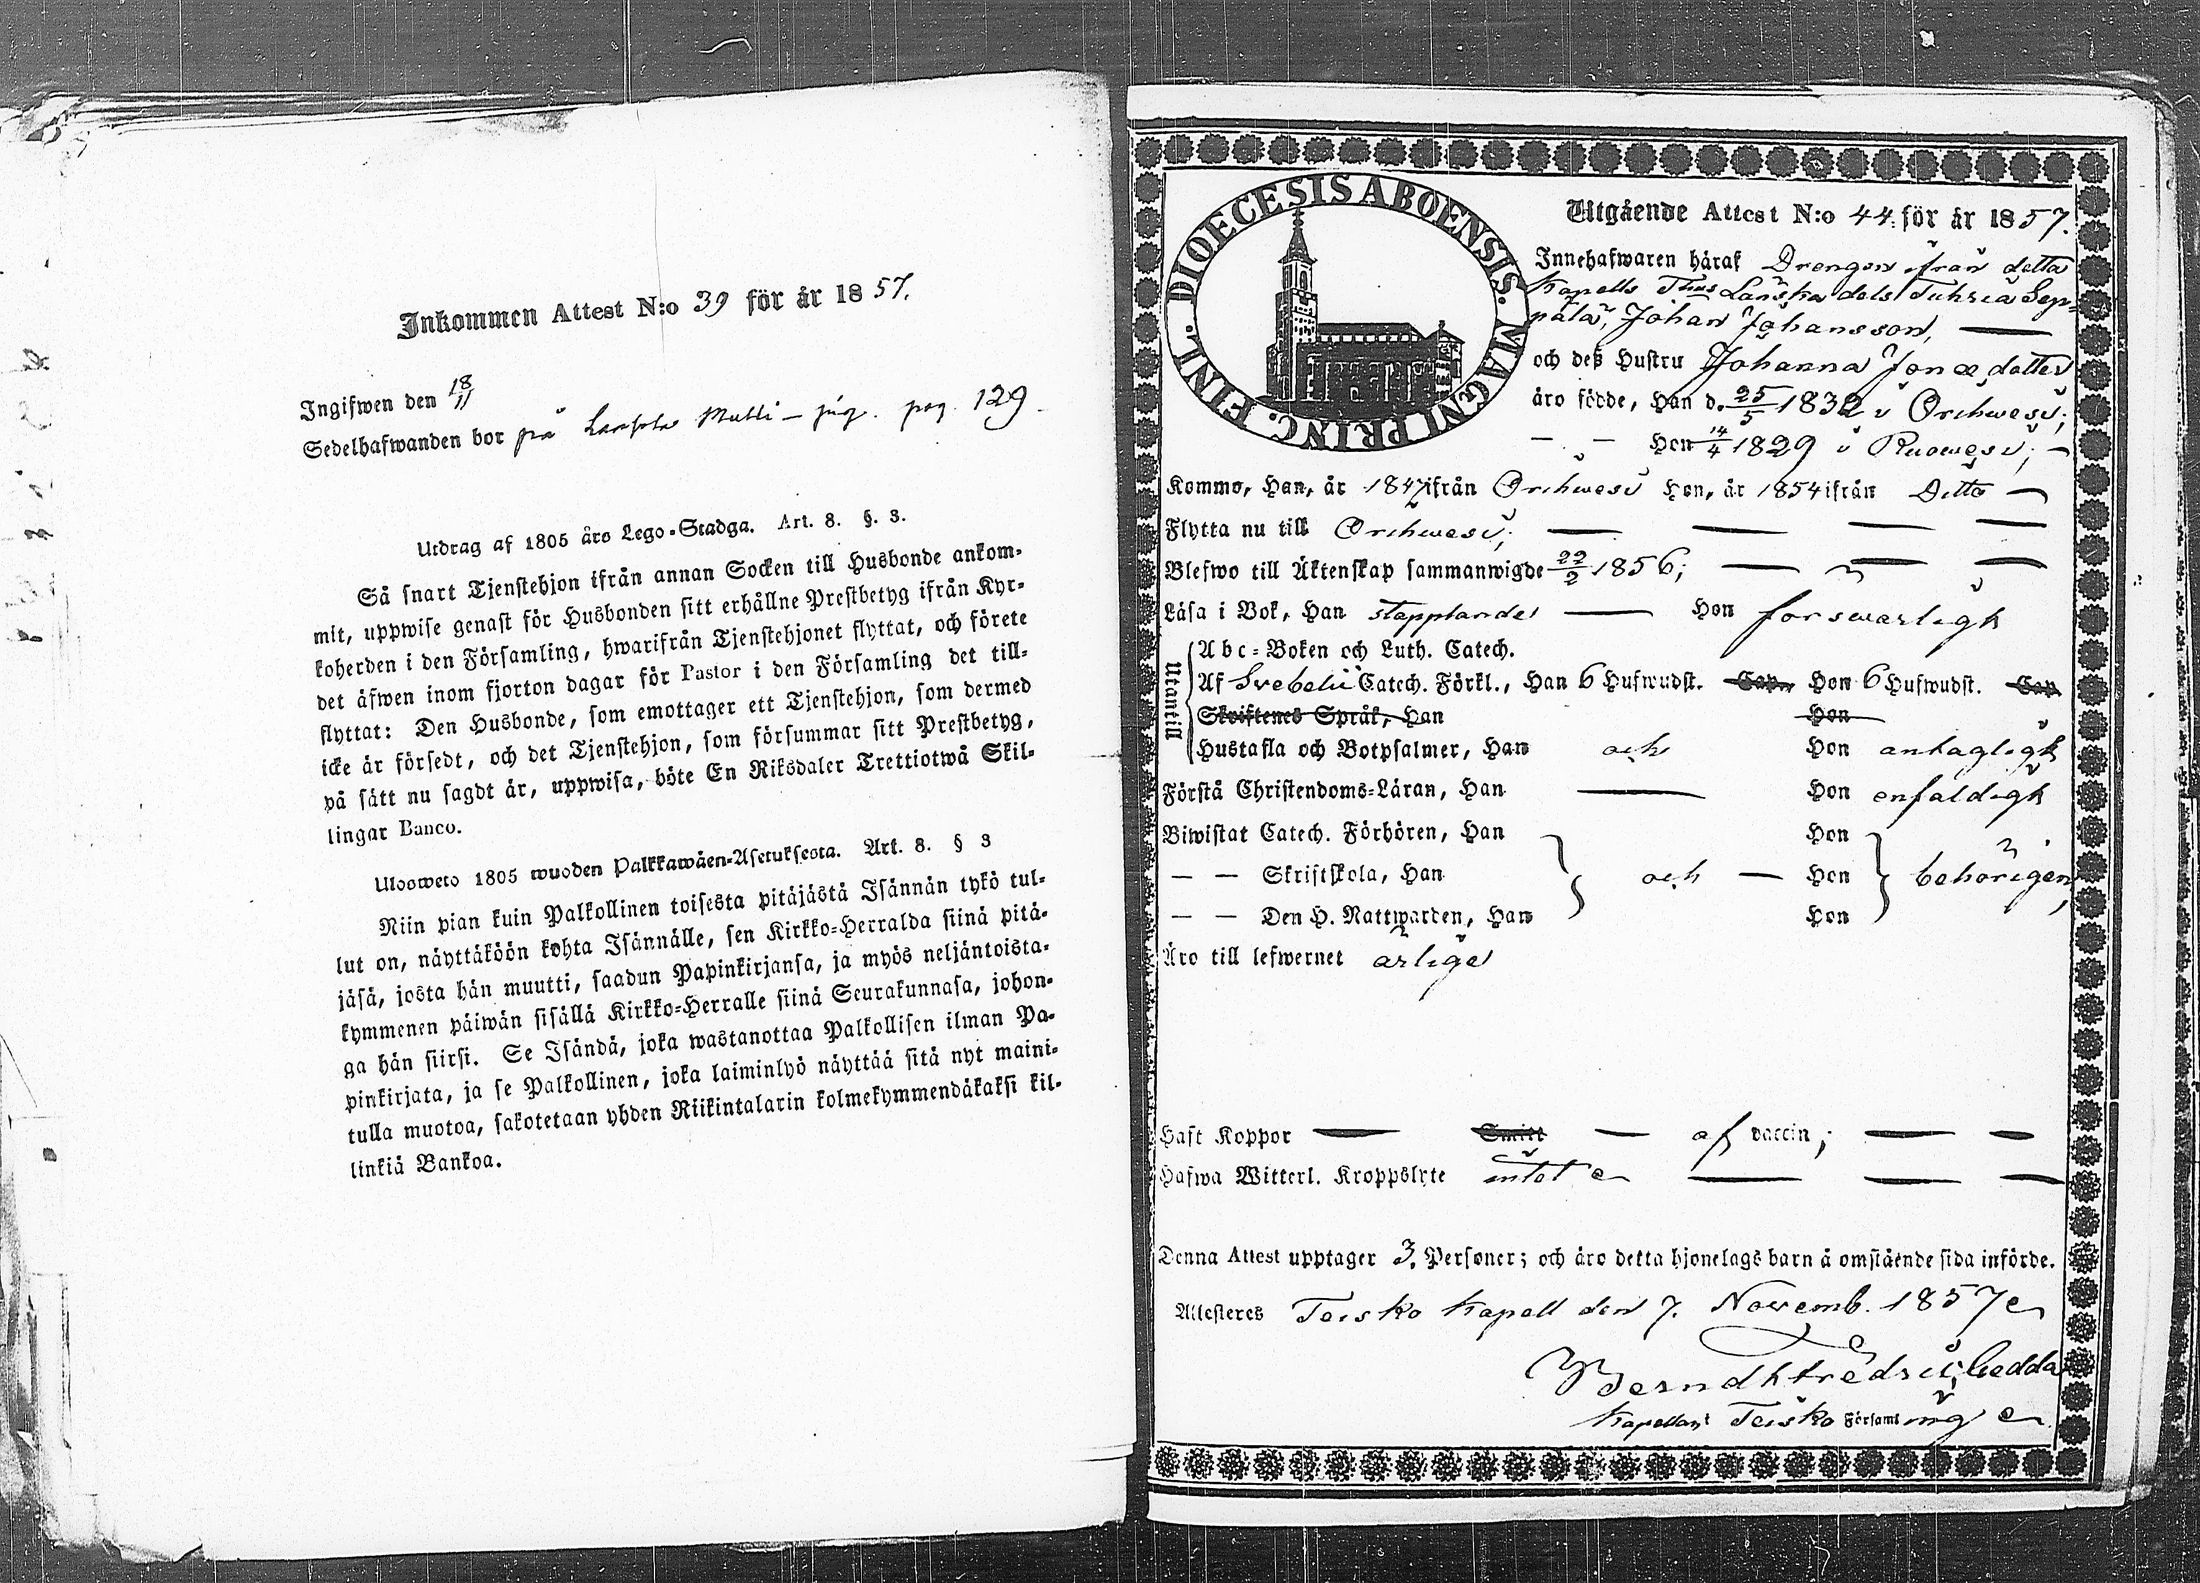 Inkommen Attest N:o 39 för år 1857.
Ingifwen den 18/11
Sedelhafwanden bor på Matti – pag. 129.
Utdrag af 1805 års Lego-Stadga. Art. 8. §. 3.
Så snart Tjenstehjon ifrån annan Socken till Husbonde ankom-
mit, uppwise genast för Husbonden sitt erhållne Prestbetyg ifrån Kyr-
koherden i den Församling, hwarifrån Tjenstehjonet flyttat, och förete
det äfwen inom fjorton dagar för Pastor i den Församling det till-
flyttat: Den Husbonde, som emottager ett Tjenstehjon, som dermed
icke är försedt, och det Tjenstehjon, som försummar sitt Prestbetyg,
på sätt nu sagdt är, uppwisa, böte En Riksdaler Trettiotwå Skil-
lingar Banco.
Ulosweto 1805 wuoden Palkkawäen-Asetuksesta. Art. 8. § 3
Niin pian kuin Palkollinen toisesta pitäjästä Isännän tykö tul-
lut on, näyttäköön kohta Isännälle, sen Kirkko-Herralda siinä pitä-
jäsä, josta hän muutti, saadun Papinkirjansa, ja myös neljäntoista-
kymmenen päiwän sisällä Kirkko-Herralle siinä Seurakunnasa, johon-
ga hän siirsi. Se Isändä, joka wastanottaa Palkollisen ilman Pa-
pinkirjata, ja se Palkollinen, joka laiminlyö näyttää sitä nyt maini-
tulla muotoa, sakotetaan yhden Riikintalarin kolmekymmendäkaksi kil-
linkiä Bankoa.
DIOECESIS ABOENSIS. MAGNI PRINC. FINL.
Utgående Attest N:o 44. för år 1857.
Innehafwaren häraf Drengen ifrån detta
Kapells Lanska dels Tuhria Sep-
pälä, Johan Johansson,
och deß Hustru Johanna Jonæ dotter
äro födde, Han d. 25/5 1832 i Orihwesi;
– – Hon 14/4 1829 i Ruowesi; –
Kommo, Han, år 1847 ifrån Orihwesi Hon, år 1854 ifrån Ditto
Flytta nu till Orihwesi;
Blefwo till Äktenskap sammanwigde 22/2 1856;
Läsa i Bok, Han stapplande Hon forswarligh
Utantill
Abc-Boken och Luth. Catech.
Af Svebelii Catech. Förkl., Han 6 Hufwudst. Cap. Hon 6 Hufwudst. Cap
Skriftenes Språk, Han Hon
Hustafla och Botpsalmer, Han och Hon antagligh
Förstå Christendoms-Läran, Han Hon enfaldigh
Biwistat Catech. Förhören, Han Hon
– – Skriftskola, Han och – Hon behörigen,
– – Den H. Nattwarden, Han Hon
Äro till lefwernet ärlige
Haft Koppor Smitt af vaccin;
Hafwa Witterl. Kroppslyte intet
Denna Attest upptager 3. Personer; och äro detta hjonelags barn å omstående sida införde.
Attesteres Teisko Kapell den 7. Novemb. 1857
Berndt Fredric Gedda
Kapellan i Teisko Församling